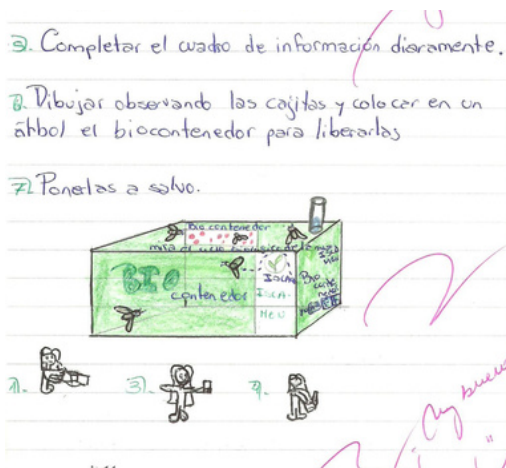 5. Completar el cuadro de información diaramente.
6. Dibujar observando las cajitas y colocar en un
árbol el biocontenedor para liberarlas
7. Ponerlas a salvo.
Bio contenedor
mira el ciclo biologico de la
BIO
contenedor
ISCA-
MEN
Bio
1.
3).
7.
Muy bueno